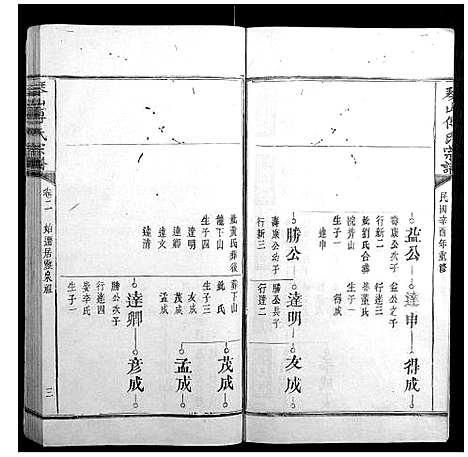 琴山傅氏宗譜
民國辛酉年重修
益公
壽康公次子
行新二
妣劉氏合葬
院背山
生子一
達申
達申
益公之子
行達三
妣董氏
生子一
得成
得成
勝公
壽康公幼子
行新三
妣黃氏葬後
龍下山
生子四
達明
達卿
達文
達清
達明
勝公長子
行達二
葬下山
妣氏
生子三
友成
茂成
孟成
友成
茂成
孟成
達卿
勝公次子
行達四
娶李氏
生子一
彥成
琴山傅氏宗譜
卷二
始遷居盤泉祖
三